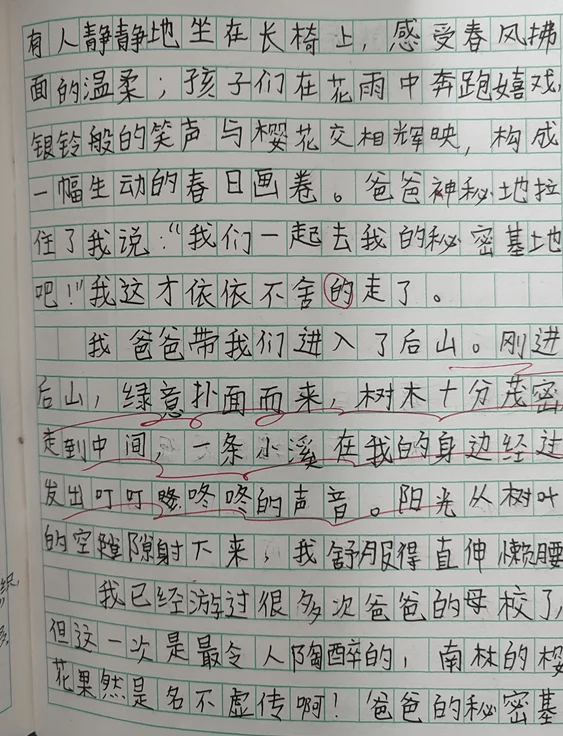 有人静静地坐在长椅上，感受春风拂
面的温柔；孩子们在花雨中奔跑嬉戏，
银铃般的笑声与樱花交相辉映，构成
一幅生动的春日画卷。爸爸神秘地拉
住了我说："我们一起去我的秘密基地
吧！"我这才依依不舍的走了。
我爸爸带我们进入了后山。刚进
后山，绿意扑面而来，树木十分茂密
走到中间，一条小溪在我的身边经过
发出叮叮咚咚咚的声音。阳光从树叶
的空隙隙射下来，我舒服得直伸懒腰
我已经游过很多次爸爸的母校了，
但这一次是最令人陶醉的，南林的樱
花果然是名不虚传啊！爸爸的秘密基